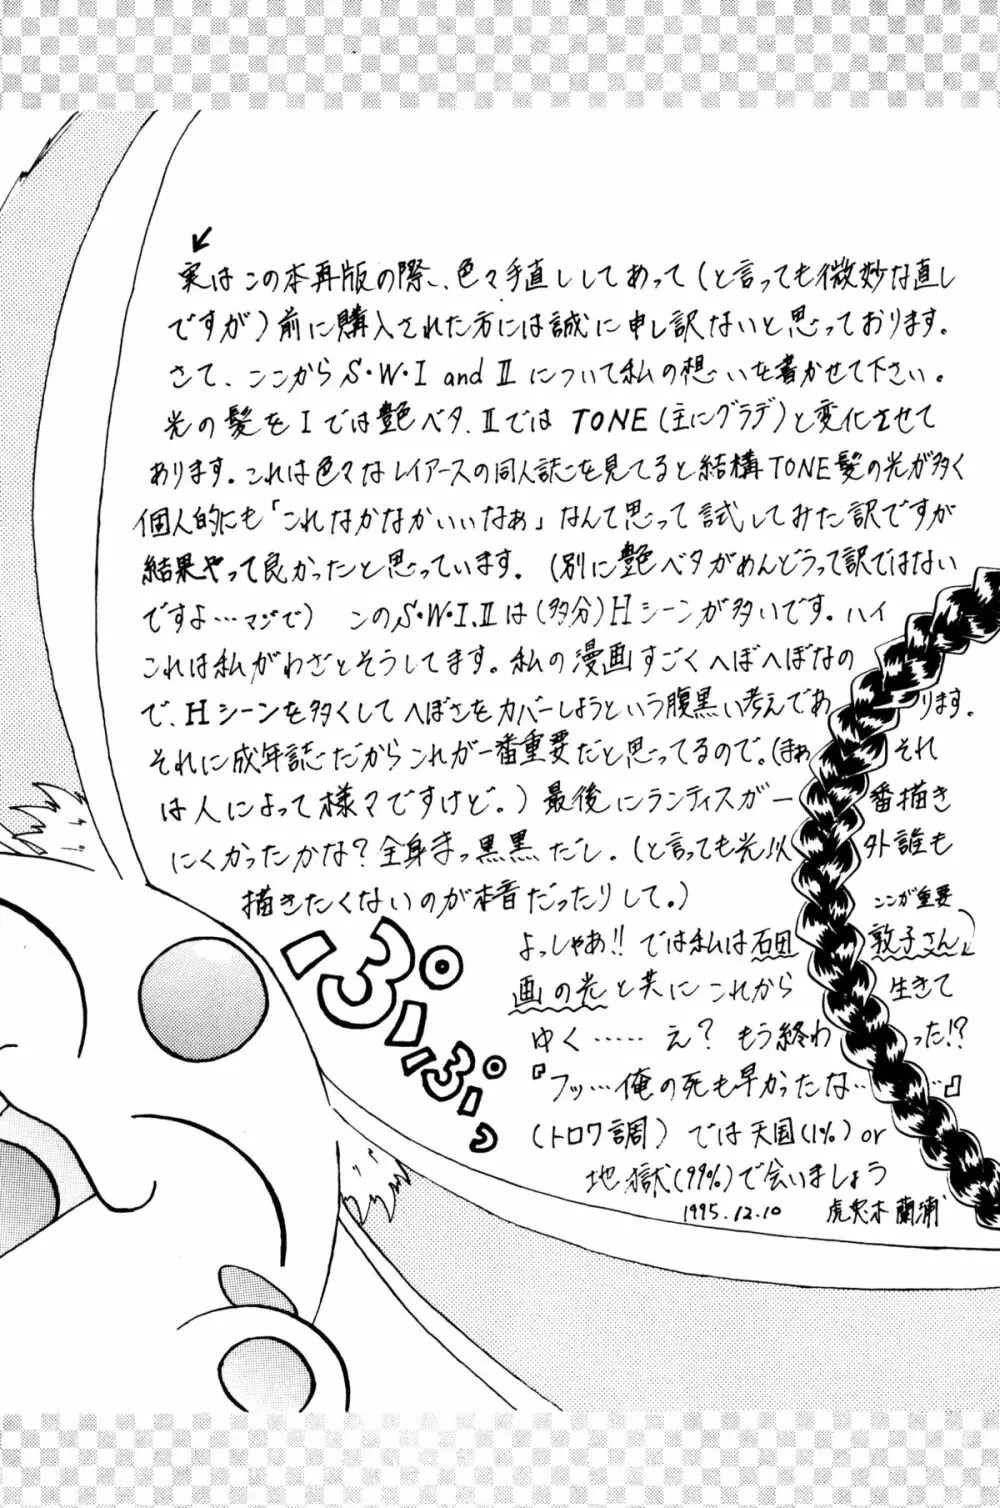 実はこの本再版の際、色々手直ししてあって(と言っても微妙な直し
ですが)前に購入された方には誠に申し訳ないと思っております。
さて、ここからS・W・I and IIについて私の想いを書かせて下さい。
光の髪をIでは艶ベタ、IIではTONE(主にグラデ)と変化させて
あります。これは色々なレイアースの同人誌を見てると結構TONE髪の光が多く
個人的にも「これなかなかいいなぁ」なんて思って試してみた訳ですが
結果やって良かったと思っています。(別に艶ベタがめんどうって訳ではない
ですよ…マジで) このS・W・I、IIは(多分)Hシーンが多いです。ハイ
これは私がわざとそうしてます。私の漫画すごくへぼへぼなの
で、Hシーンを多くしてへぼさをカバーしようという腹黒い考えであります。
それに成年誌だからこれが一番重要だと思ってるので。(まぁそれ
は人によって様々ですけど。)最後にランティスが一番描き
にくかったかな?全身まっ黒黒だし。(と言っても光以外誰も
描きたくないのが本音だったりして。)
ぷぷぷ。
ココが重要
よっしゃあ!!では私は石田敦子さん
画の光と共にこれから生きて
ゆく……え?もう終わった!?
『フッ…俺の死も早かったな……』
(トロワ調)では天国(1%)or
地獄(99%)で会いましょう
1995.12.10 虎兎木蘭浦